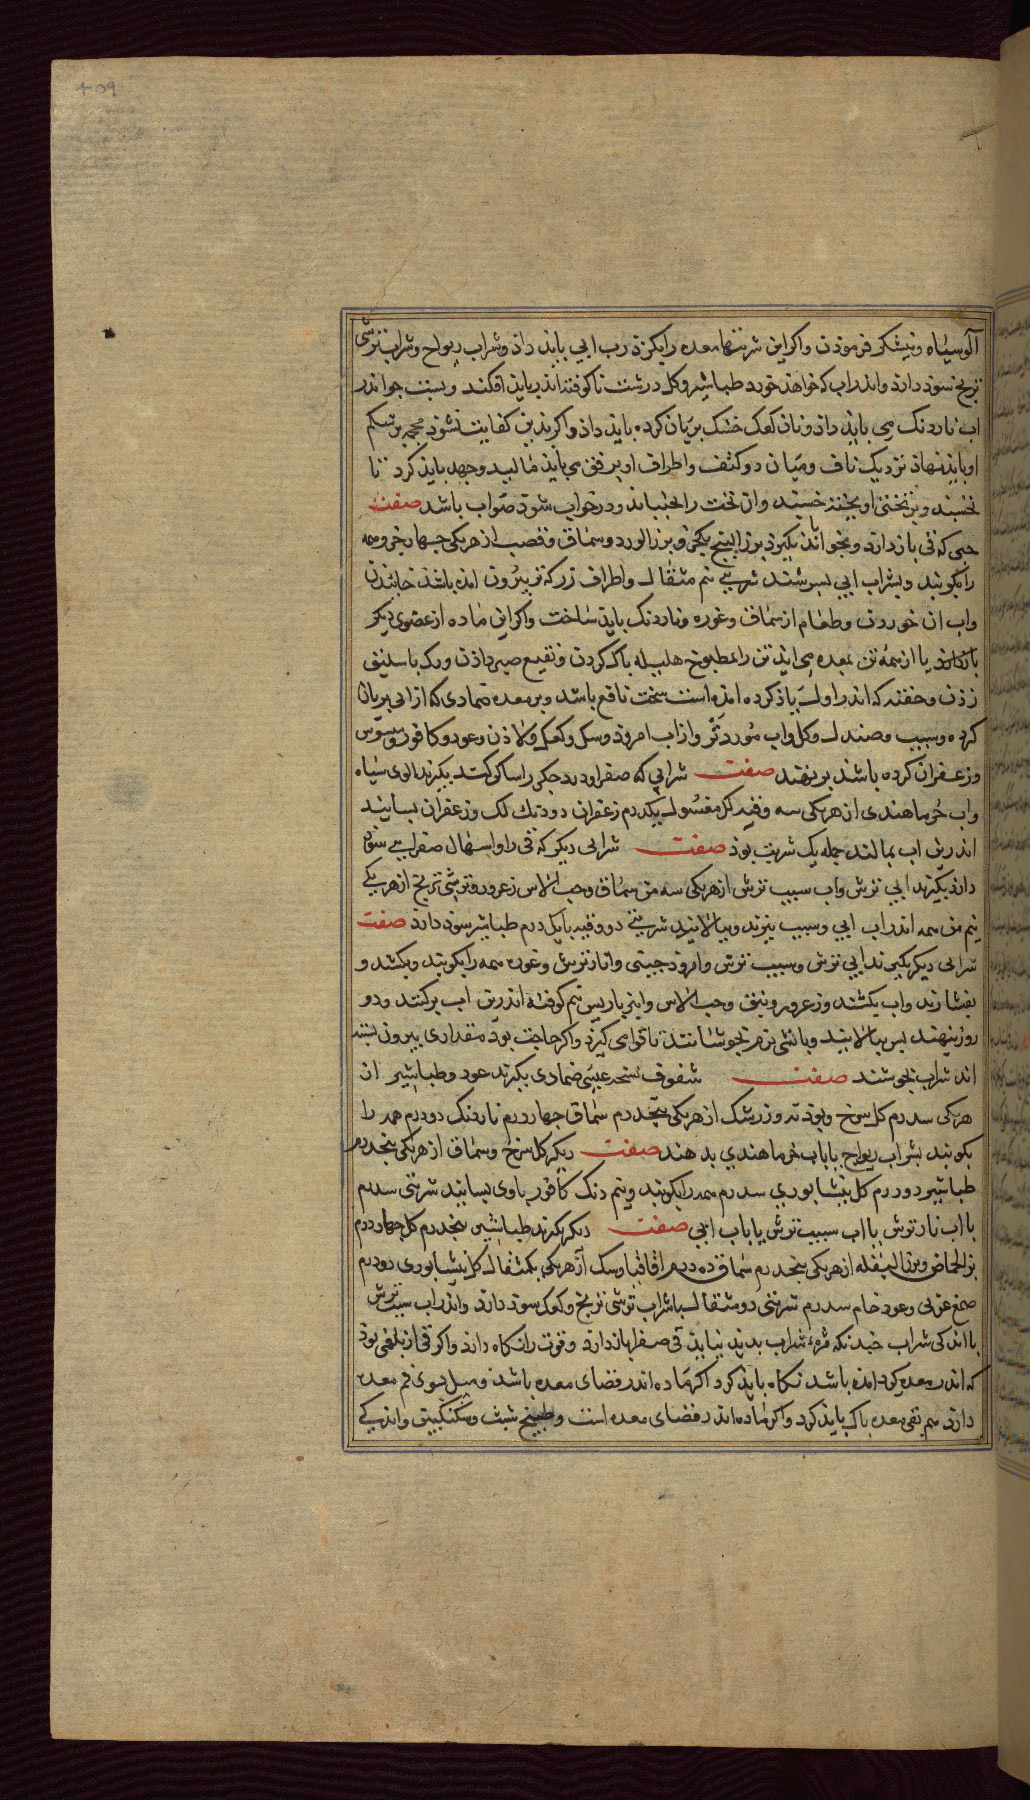 409
آلوسیاه ونیشکر فرمودن واکر این شربتها معده را بکزد رب ابی باید داد وشراب ریواج وشراب ترشی
ترنج سود دارد واندر اب که خواهد خورد طباشیر وکل درشت ناکوفته اندر باید افکند وپست جو اندر
اب ناردنک می باید داد ونان کعک خشک بریان کرده باید داد واکر بدین کفایت نشود محجمه بر شکم
او باید نهاد نزدیک ناف ومیان دو کتف واطراف او برفق می باید مالید وجهد باید کرد تا
بخسبد وبر تختی اویخته خسبد وان تخت را بجنباند ودر خواب شود صواب باشد صفت
حبی که قی باز دارد وبخواباند بکیرد بزر البنج یکجزو وبزر الورد وسماق وقصب از هریکی چهار جزو همه
را بکوبند وبشراب ابی بسرشند شربتی نیم مثقال واطراف رز که نو بیرون امده باشد خاییدن
واب ان خوردن وطعام از سماق وغوره وناردنک باید ساخت واکر این ماده از عضوی دیکر
یا از همه تن بمعده می اید تن را بمطبوخ هلیله پاک کردن ونقیع صبر دادن ورک باسلیق
زدن وحقنه که اندر اول یاد کرده امده است سخت نافع باشد وبر معده ضمادی که از ابی بریان
کرده وسیب وصندل وکل واب مورد تر واز اب امرود وسک وکعک ولادن وعود وکافور وسوس
وزعفران کرده باشند برنهند صفت شرابی که صفرا ودرد جکر را ساکن کند بکیرند الوی سیاه
واب خرما هندی از هریکی سه وقیه لک مغسول یکدرم زعفران دودنک لک وزعفران بسایند
اندرین اب بمالند جمله یک شربت بود صفت شرابی دیکر که قی را واسهال صفرایی سود
دارد بکیرند ابی ترش واب سیب ترش از هریکی سه من سماق وحب الاس زعرور وترشی ترنج از هریکی
نیم من همه اندر اب ابی وسیب بپزند وبپالایند شربتی دو وقیه با یک درم طباشیر سود دارد صفت
شرابی دیکر بکیرند ابی ترش وسیب ترش وامرود چینی وانار ترش وغوره همه را بکوبند وبکشند و
بفشارند واب بکشند وزعرور ونبق وحب الاس وانبرباریس نیم کوفته اندرین اب پرکنند ودو
روز بنهند پس بپالایند وباتش نرم بجوشانند تا قوامی کیرد واکر حاجت بود مقداری بیرون بسته
اندر شراب بجوشند صفت سفوف نسخه عیسی ضمادی بکیرند عود وطباشیر از
هریکی سه درم کل سرخ وپودنه وزرشک از هریکی پنجدرم سماق چهار درم ناردنک دو درم همه را
بکوبند بشراب ریواج یا باب خرما هندی بدهند صفت دیکر کل سرخ وسماق از هریکی پنجدرم
طباشیر دو درم کل نیشابوری سه درم همه را بکوبند ونیم دنک کافور باوی بسایند شربتی سه درم
با اب نار ترش یا اب سیب ترش یا باب ابی صفت دیکر بکیرند طباشیر پنجدرم کل چهار درم
بزر الحماض وبزر البقله از هریکی پنجدرم سماق ده درم اقاقیا وسک از هریکی یکمثقال کل نیشابوری دو درم
صمغ عربی وعود خام سه درم شربتی دو مثقال با شراب ترشی ترنج وکعک سود دارد واندر اب سیب ترش
با اندکی شراب چندانکه مزه شراب بدید نیاید قی صفرا باز دارد وقوت را نکاه دارد واکر قی از بلغمی بود
که اندر معده کرد امده باشد نکاه باید کرد اکر ماده اندر فضای معده باشد ومیل سوی فم معده
دارد هم بقی معده پاک باید کرد واکر ماده اندر فضای معده است وطبیخ شبث وسکنکبین واندکی